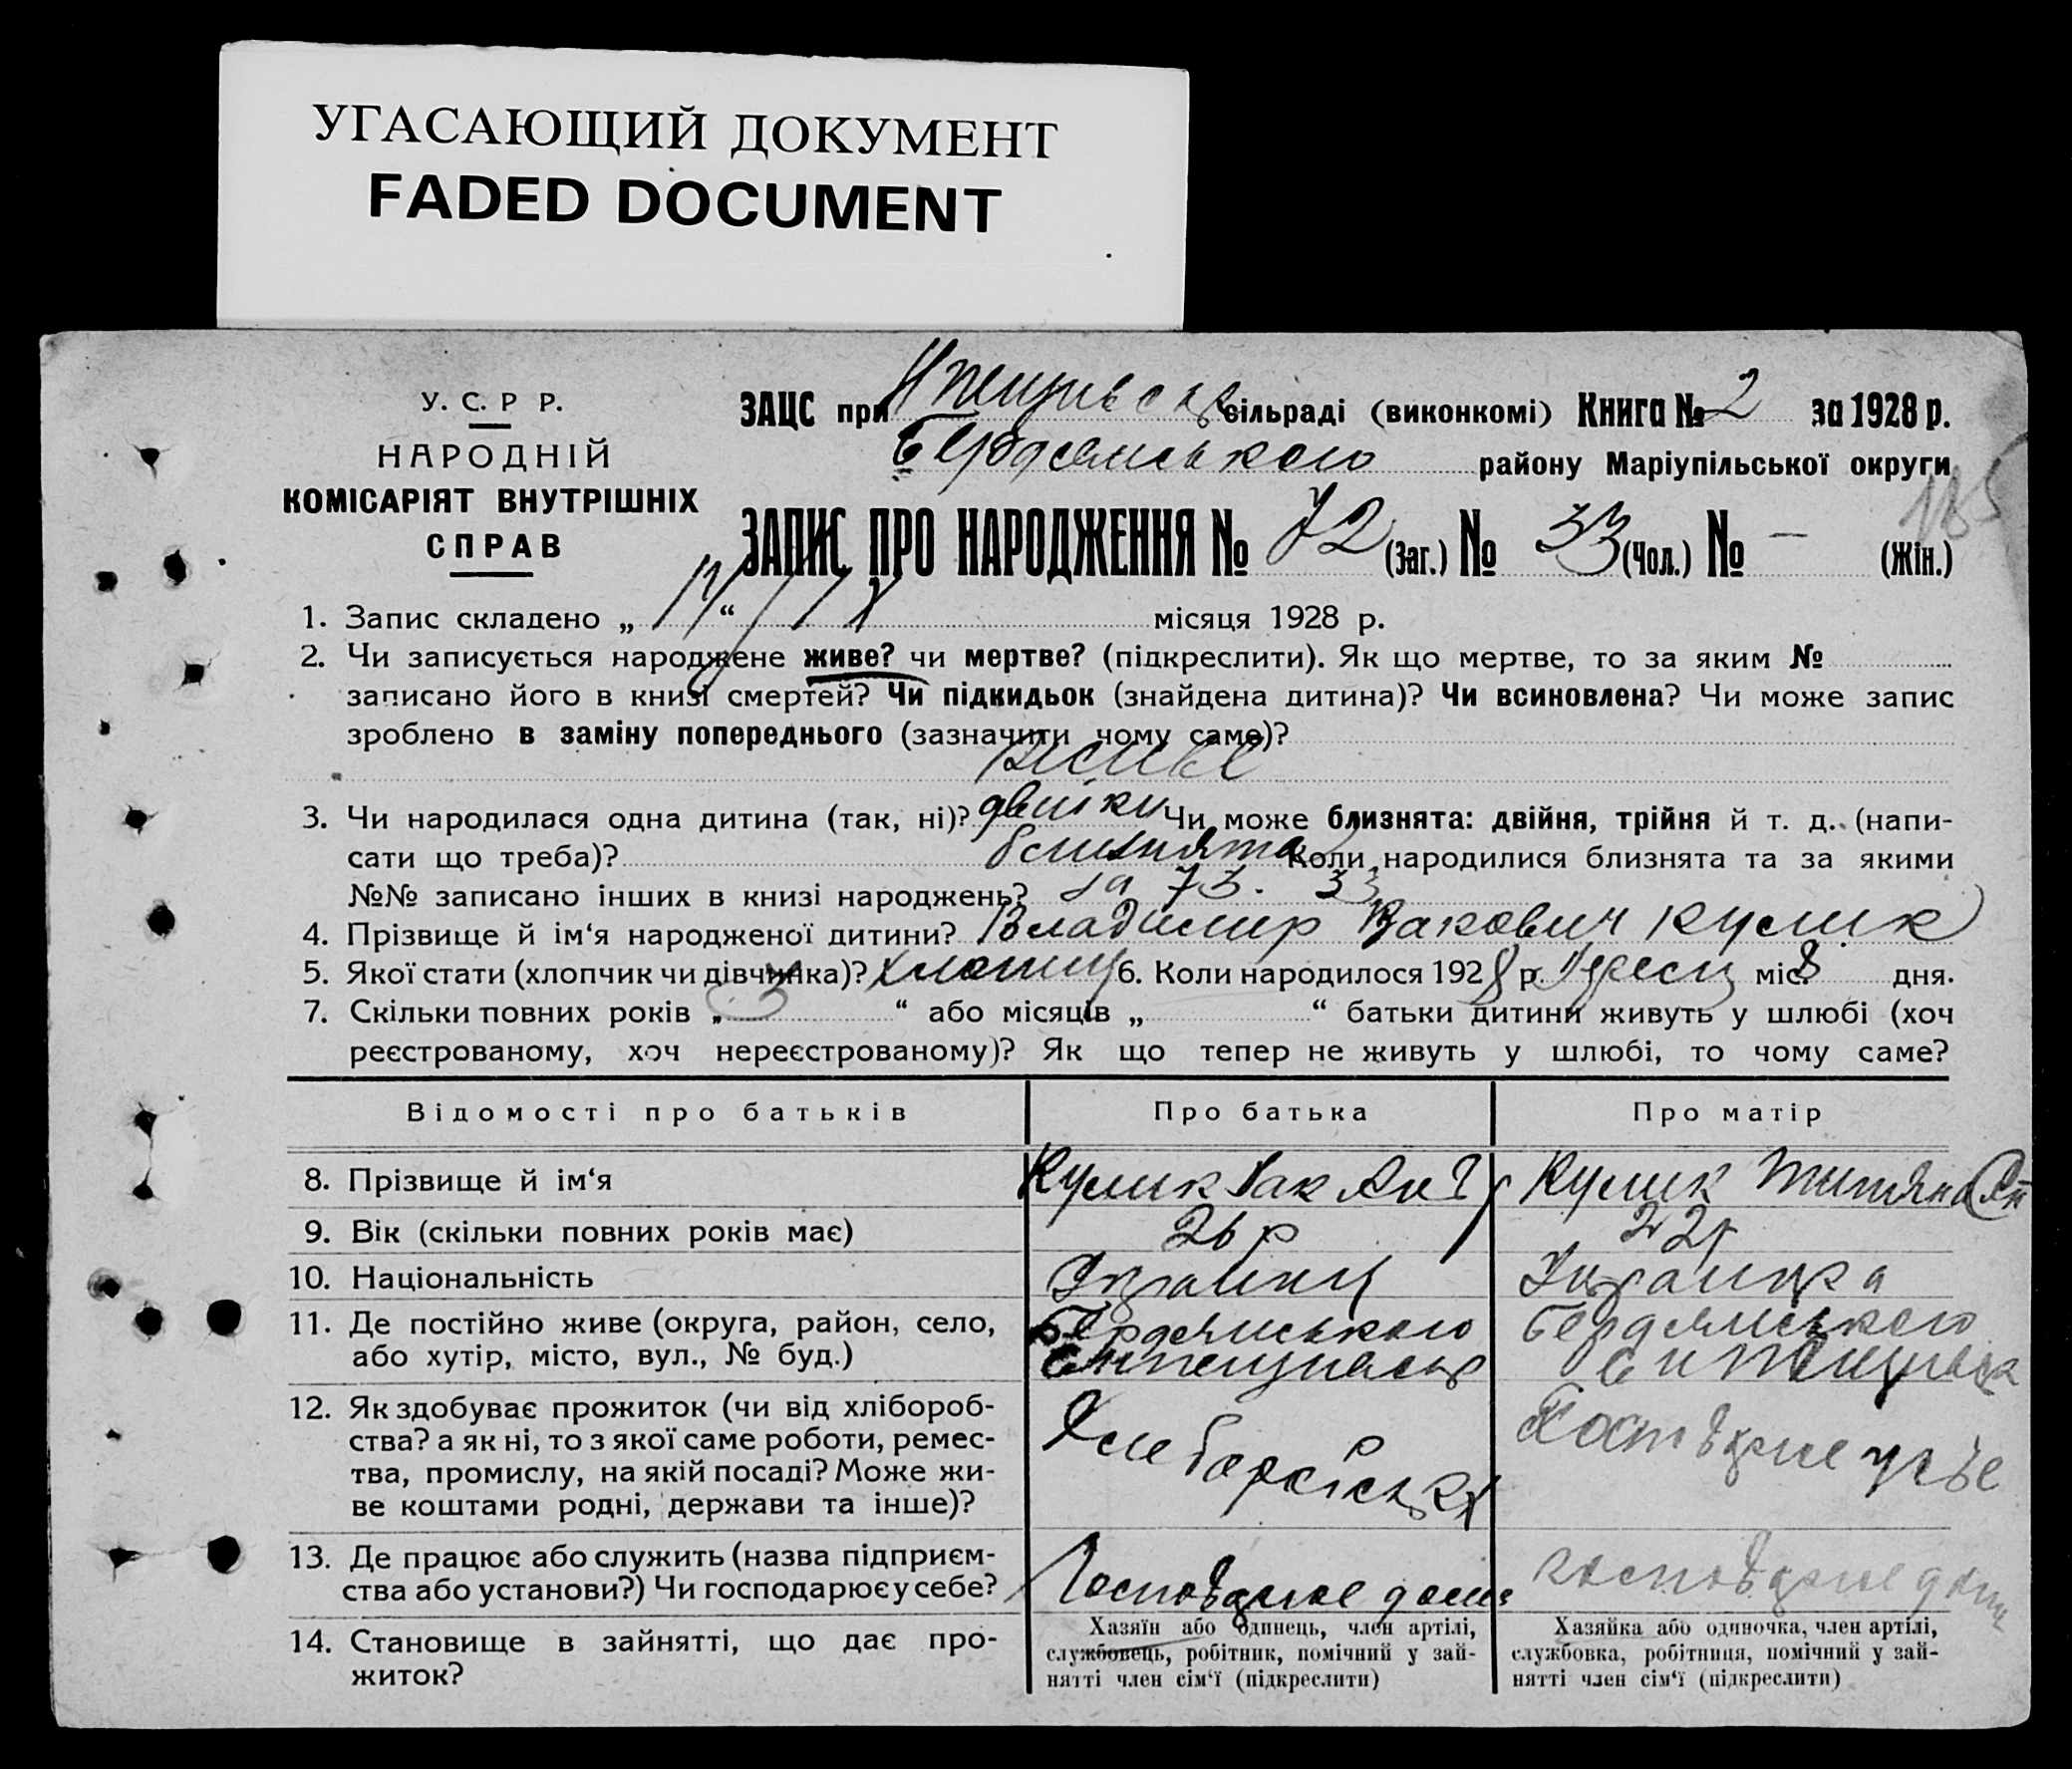 УГАСАЮЩИЙ ДОКУМЕНТ
FADED DOCUMENT
У. С. Р Р.
НАРОДНІЙ
КОМІСАРІЯТ ВНУТРІШНІХ
СПРАВ
ЗАЦС при сільраді (виконкомі) Книга № 2 за 1928 р.
Бердянського району Маріупільської округи
185
ЗАПИС ПРО НАРОДЖЕННЯ № 72 (Заг.) № 33 (Чол.) № — (Жін.)
1. Запис складено „ “ місяця 1928 р.
2. Чи записується народжене живе? чи мертве? (підкреслити). Як що мертве, то за яким №
записано його в книзі смертей? Чи підкидьок (знайдена дитина)? Чи всиновлена? Чи може запис
зроблено в заміну попереднього (зазначити чому саме)?
живе
3. Чи народилася одна дитина (так, ні)? двійки Чи може близнята: двійня, трійня й т. д. (напи-
сати що треба)? близнята Коли народилися близнята та за якими
№№ записано інших в книзі народжень? за 73. 33
4. Прізвище й ім'я народженої дитини? Владимир Якович Кулик
5. Якої стати (хлопчик чи дівчинка)? хлопиц 6. Коли народилося 1928 р. міс. 8 дня.
7. Скільки повних років „ 3 “ або місяців „ “ батьки дитини живуть у шлюбі (хоч
реєстрованому, хоч нереєстрованому)? Як що тепер не живуть у шлюбі, то чому саме?
Відомості про батьків Про батька Про матір
8. Прізвище й ім‘я Кулик Як Кулик Титяна
9. Вік (скільки повних років має) 26 р 22 р
10. Національність Украинц Украинка
11. Де постійно живе (округа, район, село, Бердянського Бердянського
або хутір, місто, вул., № буд.)
12. Як здобуває прожиток (чи від хлібороб-
ства? а як ні, то з якої саме роботи, ремес-
тва, промислу, на якій посаді? Може жи-
ве коштами родні, держави та інше)?
13. Де працює або служить (назва підприєм-
ства або установи?) Чи господарює у себе? дома
14. Становище в зайнятті, що дає про-
житок?
Хазяїн або одинець, член артілі,
службовець, робітник, помічний у зай-
нятті член сім‘ї (підкреслити)
Хазяйка або одиночка, член артілі,
службовка, робітниця, помічний у зай-
нятті член сім‘ї (підкреслити)